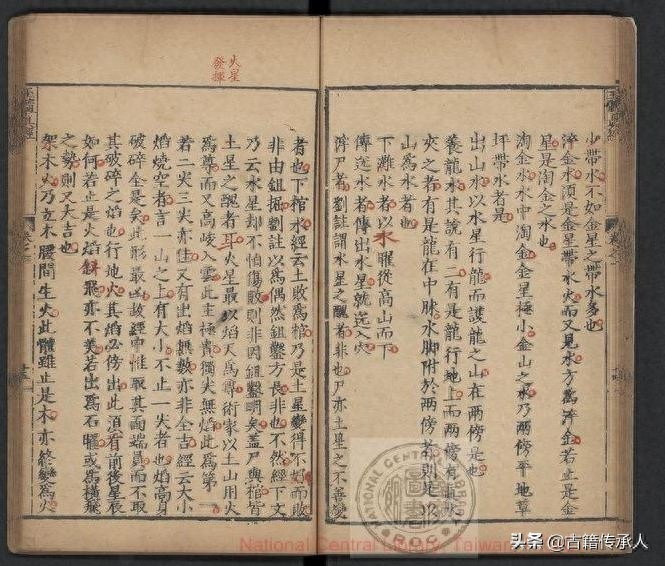 小帶水不如金星之帶水多也
淬金水須是金星帶水火而又見水方爲淬金若止是金
星是淘金之水也
淘金水水中淘金金星極小金山之水乃兩傍平地草
坪帶水者是
出山水以水星行龍而護龍之山在兩傍是也
養龍水其說有二有是龍行地上而兩傍有
夾之者有是龍在中脉水脚附於兩傍者則是以
山爲水者也
下灘水者以水星從高山而下
傳送水者傳出水星就送入穴
漭尸者劉註謂水星之醜者非也尸亦土星之不善變
者也下棺水經云土敗爲棺乃是土星變得不好而敗
非由鉏掘劉註以爲偶然鉏鑿方長非也不然經下文
乃云水星却不怕傷殷則非因鉏鑿明矣蓋尸與棺皆
土星之醜者耳火星最以焰天爲尊術家以土山用火
爲尊而又高峻入雲此主極貴獨尖無焰此爲第一
若二尖三尖亦佳又有出焰無數亦非全吉經云大小
焰燒空者言一山之上有大小不止一尖者也焰高身
破碎全是矣此形最凶故經中惟取其面端員而不取
其破碎之焰也行地火其焰必傍出此須看前後星辰
如何若止是火焰斜飛亦不美若出爲石曜或爲橫飛
之勢則又大吉也
架木火乃立木腰間生火此體雖止是木亦終變爲火
火星
發揮
National Central Library, Taiwan
NATIONAL CENTRAL LIBRARY
R.O.C
头条 @古籍传承人